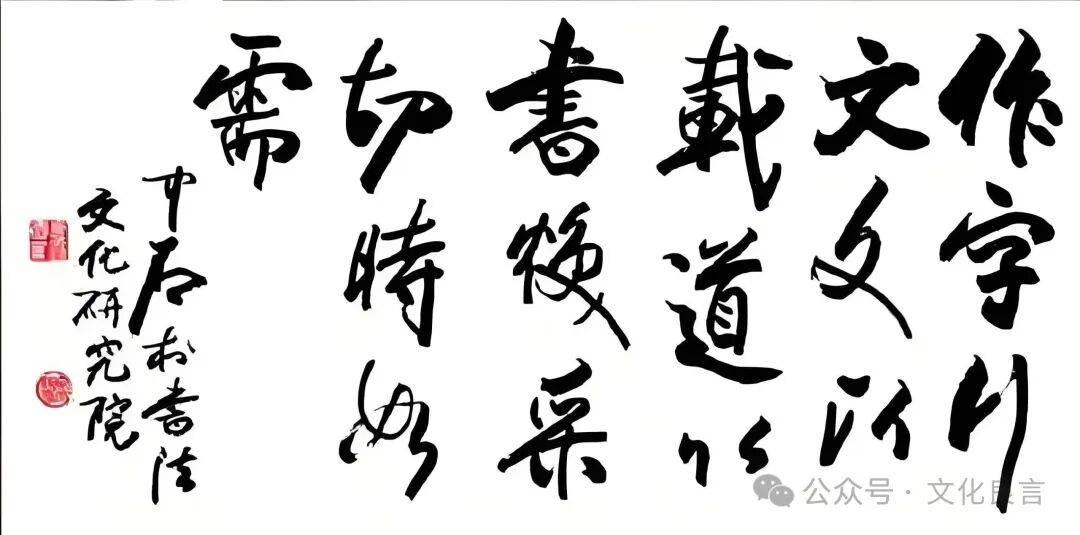 作字行
文文以
載道以
書焕采
切時如
需
中石於書法
文化研究院
公众号 · 文化良言